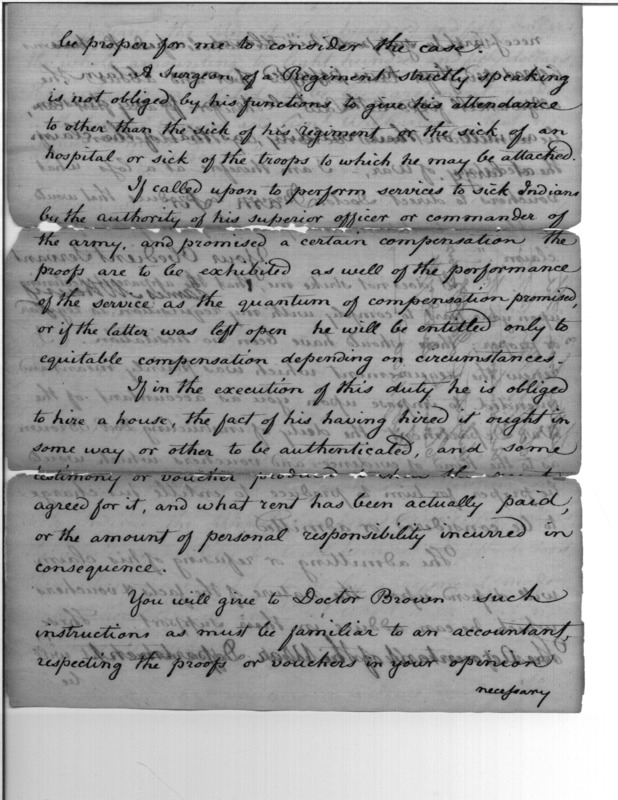 be proper for me to consider the case.
A Surgeon of a Regiment strictly speaking
is not obliged by his functions to give his attendance
to other than the sick of his regiment or the sick of an
hospital or sick of the troops to which he may be attached.
If called upon to perform services to sick Indians
by the authority of his superior officer or commander of
the army, and promised a certain compensation the
proofs are to be exhibited as well of the performance
of the service as the quantum of compensation promised,
or if the latter was left open he will be entitled only to
equitable compensation depending on circumstances.
If in the execution of this duty he is obliged
to hire a house, the fact of his having hired it ought in
some way or other to be authenticated, and some
testimony or voucher produced
agreed for it, and what rent has been actually paid,
or the amount of personal responsibility incurred in
consequence.
You will give to Doctor Brown such
instructions as must be familiar to an accountant,
respecting the proofs or vouchers in your opinion
necessary